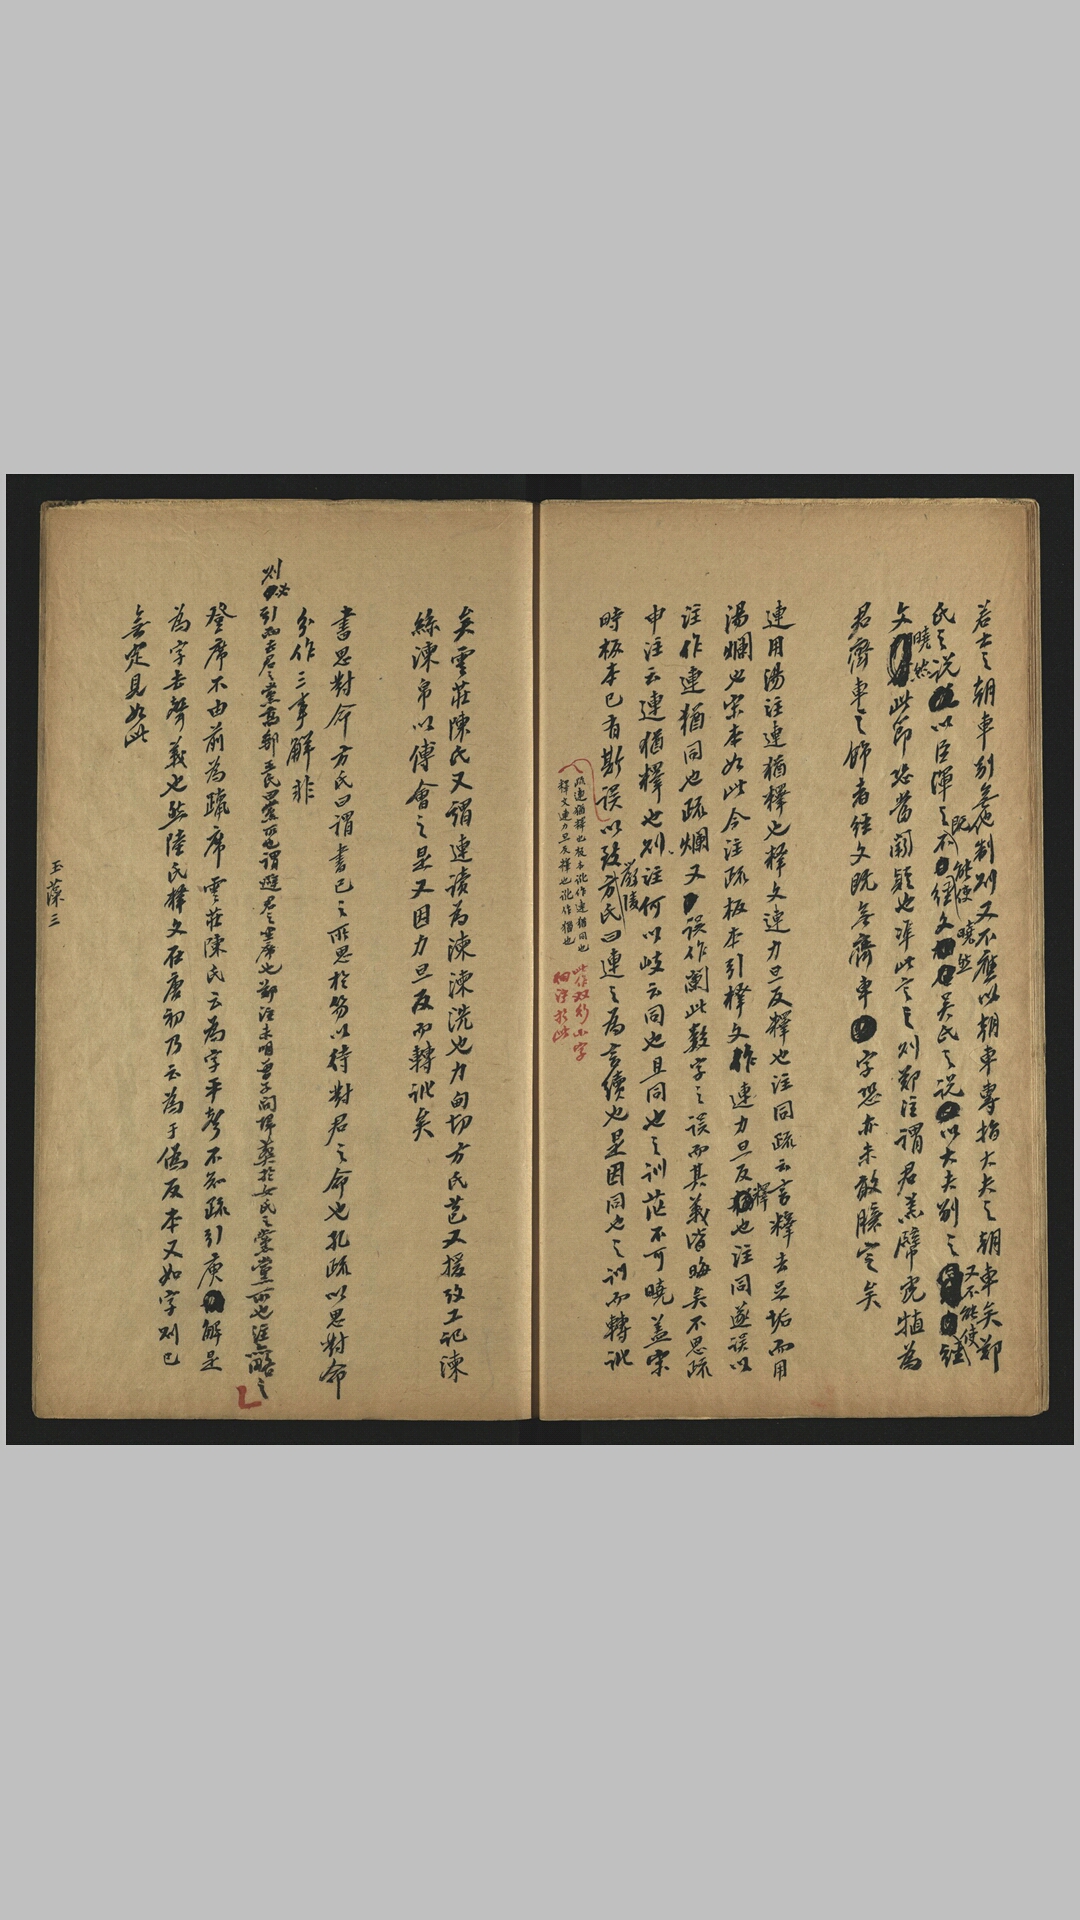 若士之朝車別無他制則又不應以朝車專指大夫之朝車矣鄭
氏之說以臣渾之既不能使經文曉然吳氏之說以大夫別之又不能使經
文曉然此節恐當闕疑也準此言之則鄭注謂君羔幦虎犆為
君齊車之飾者經文既無齊車字恐亦未敢臆定矣
連用湯注連猶釋也釋文連力旦反釋也注同疏云言釋去足垢而用
湯爛也宋本如此今注疏板本引釋文作連力旦反釋也注同遂誤以
注作連猶同也疏爛又誤作闌此數字之誤而其義皆晦矣不思疏
申注云連猶釋也則注何以歧云同也且同也之訓茫不可曉蓋宋
時板本已有斯誤以致嚴陵方氏曰連之為言續也是因同也之訓而轉訛
疏連猶釋也板本訛作連猶同也
釋文連力旦反釋也訛作猶也
此作双行小字
矣雲莊陳氏又謂連讀為湅湅洗也力甸切方氏苞又援攷工記湅
絲湅帛以傅會之是又因力旦反而轉訛矣
書思對命方氏曰謂書已之所思於笏以待對君之命也孔疏以思對命
分作三事解非
登席不由前為躐席雲莊陳氏云為字平聲不知疏引庾解是
為字去聲義也然陸氏釋文在唐初乃云為于偽反本又如字則已
無定見如此
玉藻三